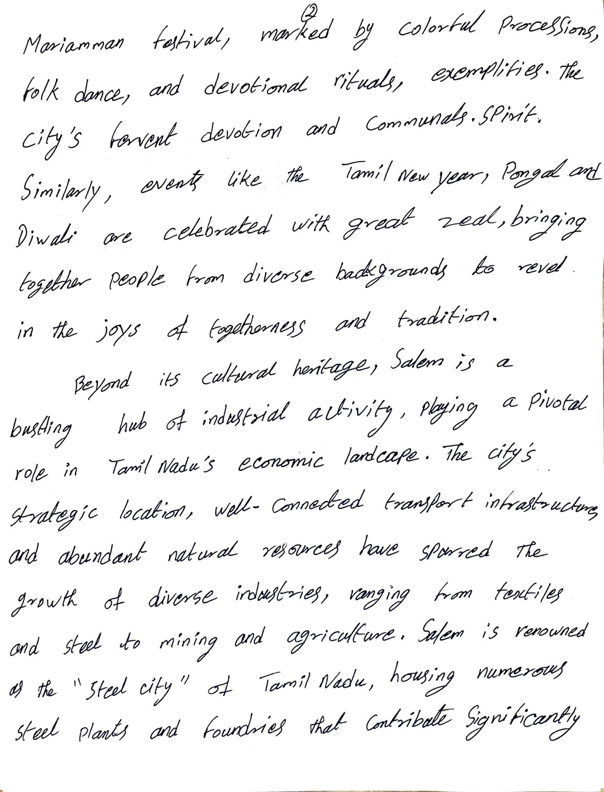 ②
Mariamman festival, marked by colorful Processions,
folk dance, and devotional rituals, exemplifies. the
city's fervent devotion and Communals. Spirit.
Similarly, events like the Tamil New year, Pongal and
Diwali are celebrated with great zeal, bringing
together people from diverse backgrounds to revel.
in the joys of togetherness and tradition.
Beyond its cultural heritage, Salem is a
bustling hub of industrial activity, playing a Pivotal
role in Tamil Nadu's economic landcape. The city's
strategic location, well-Connected transport infrastructure,
and abundant natural resources have spurred The
growth of diverse industries, ranging from textiles
and steel to mining and agriculture. Salem is renowned
as the "Steel city" of Tamil Nadu, housing numerous
steel plants and foundries that Contribute Significantly